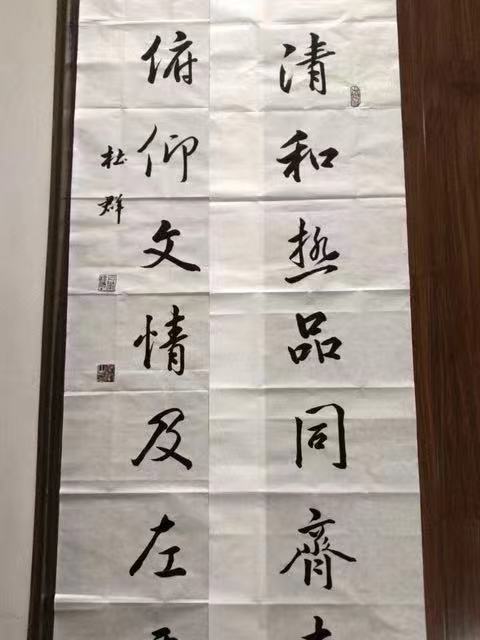 清和热品同齊
俯仰文情及左
杜群